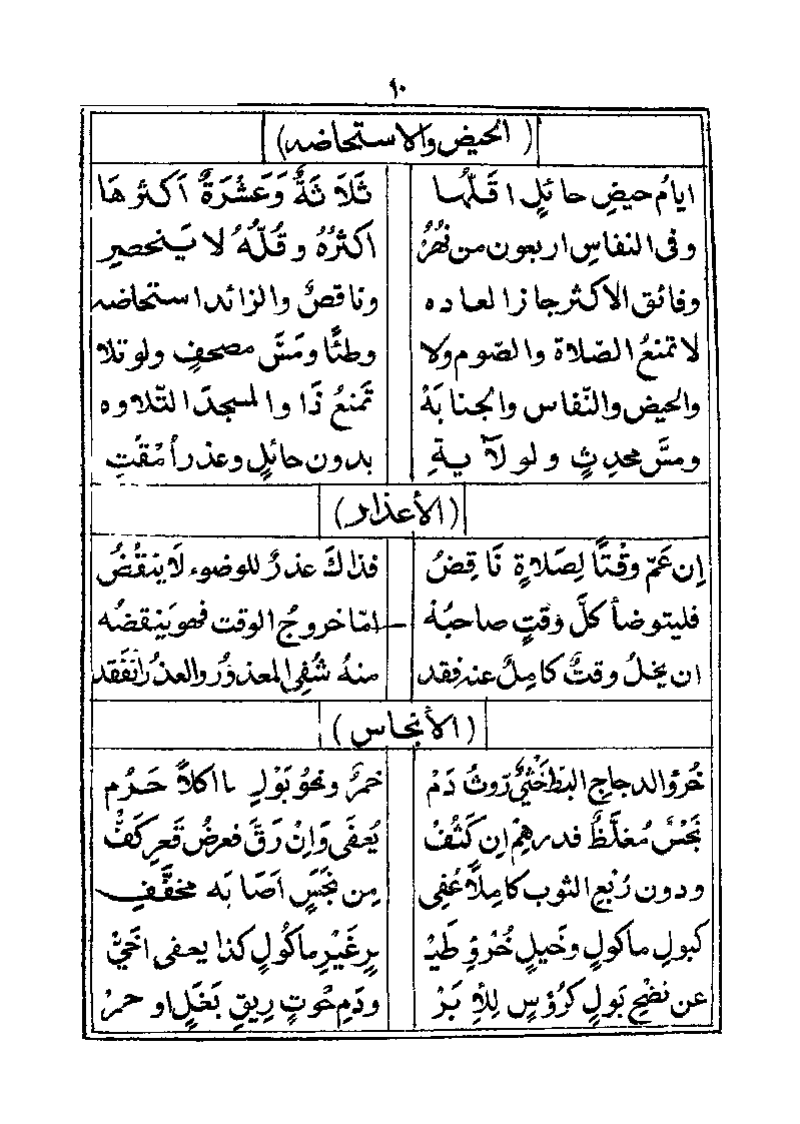 ١٠
(الحيض والاستحاضه)
ايامُ حيضِ حائلٍ اقَلّها ثَلَاثَةٌ وَعَشْرَةٌ اَكثرهَا
وفى النفاسِ اربعون من نهُرُ اكثرُهُ وقُلُّهُ لا يَنحصِر
وفائق الاكثر جاز العاده وناقصٌ والزائد استحاضه
لا تمنعُ الصّلاة والصّوم ولا وطئًا ومَسَّ مصحفٍ ولو تلا
والحيض والنّفاس والجنابَهْ تمنعُ ذَا والمسجدَ التّلاوه
ومسَّ محدِثٍ ولو لآيةِ بدون حائلٍ وعذر أمُقْتِ
(الأعذار)
إن عَمّ وقْتًا لِصَلاةٍ نَاقِضُ فذاكَ عذرٌ للوضوء لَا ينقُضُ
فليتوضأ كلَّ وقتٍ صاحبُهْ امّا خروجُ الوقت فهو يَنقضُه
ان يخلُ وقتٌ كامِلٌ عنه فقد منهُ شُفِى المعذورُ والعذرُ انفَقد
(الأنجاس)
خُرؤ الدجاجِ البطّ خَثْىٌ رَوثُ دَمْ خمرٌ ونحوُ بَوْلِ ما اكلاً حَرُم
نَجسٌ مُغلَّظٌ فدرهمٌ ان كَثُفْ يُعفَى وَاِنْ رَقَّ فعرضُ قَعرِ كَفّْ
ودون رُبْعِ الثوب كاملًا عُفِى مِن نَجَسٍ اَصَابَه مخفَّفِ
كبولِ ماكولٍ وخيلٍ خُرْؤِ طَيْـ ـرِ غَيْرِ ماكُولٍ كذا يعفى اخَىّْ
عن نضْحِ بَولٍ كرُؤسٍ لِلْإِبَرْ ودَمِ حُوتٍ رِيقِ بَغَلٍ او حمرْ